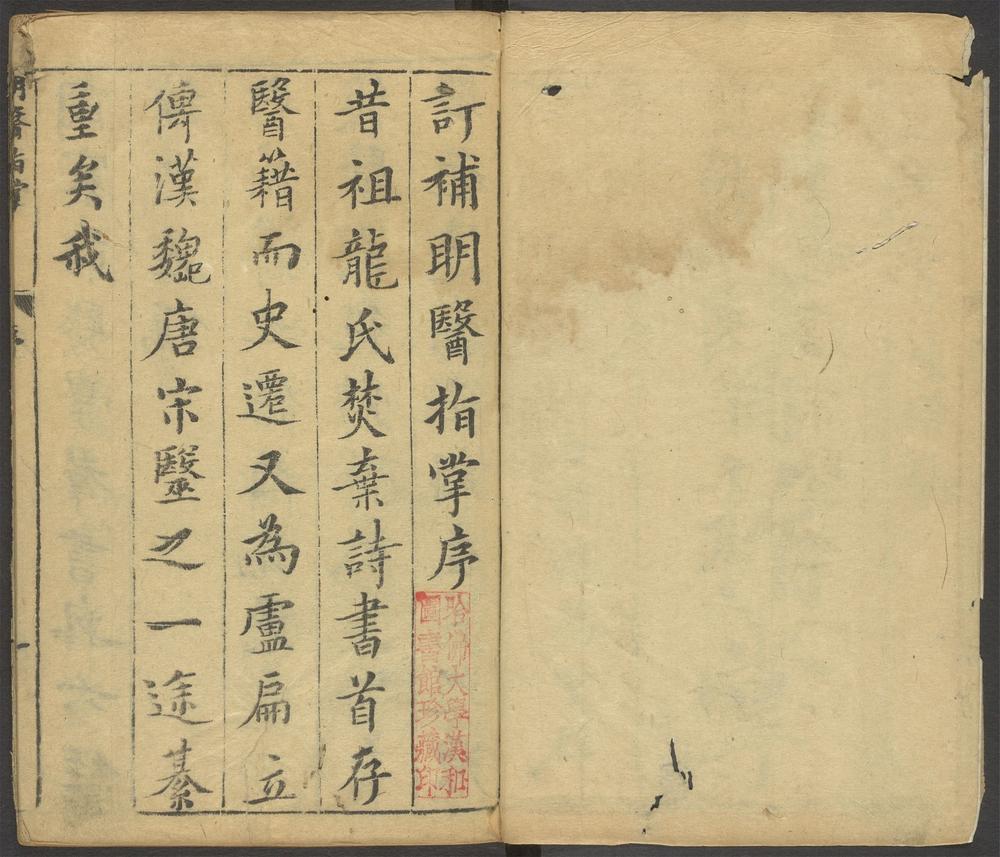 訂補明醫指掌序
哈佛大學漢和
圖書館珍藏印
昔祖龍氏焚棄詩書首存
醫籍而史遷又為盧扁立
傳漢魏唐宋毉之一途綦
重矣我